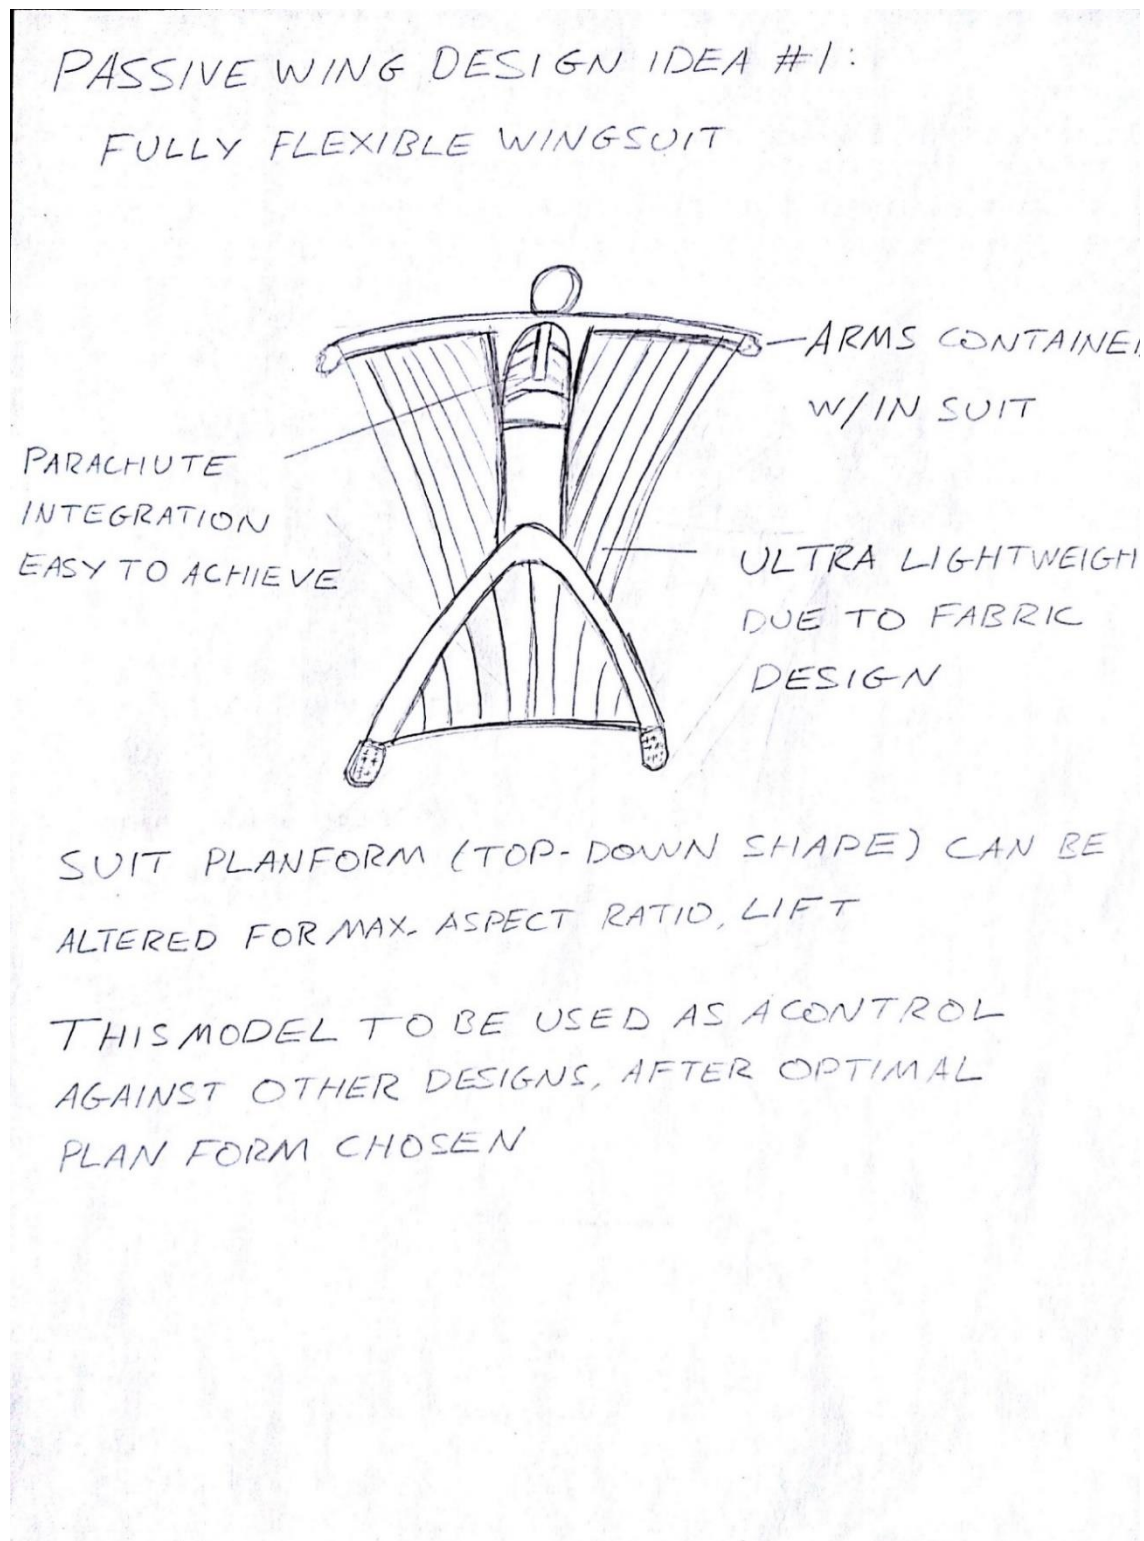 PASSIVE WING DESIGN IDEA #1:
FULLY FLEXIBLE WINGSUIT
ARMS CONTAINE
W/IN SUIT
PARACHUTE
INTEGRATION
EASY TO ACHIEVE
ULTRA LIGHTWEIGH
DUE TO FABRIC
DESIGN
SUIT PLANFORM (TOP-DOWN SHAPE) CAN BE
ALTERED FOR MAX. ASPECT RATIO, LIFT
THIS MODEL TO BE USED AS A CONTROL
AGAINST OTHER DESIGNS, AFTER OPTIMAL
PLAN FORM CHOSEN